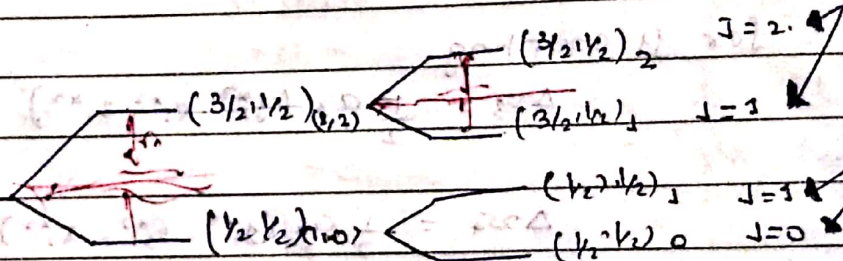 (3/2, 1/2)2 J = 2.
(3/2, 1/2)(1,2) (3/2, 1/2)1 J = 1
(1/2, 1/2)1 J = 1
(1/2 1/2)(1,0) (1/2, 1/2)0 J = 0